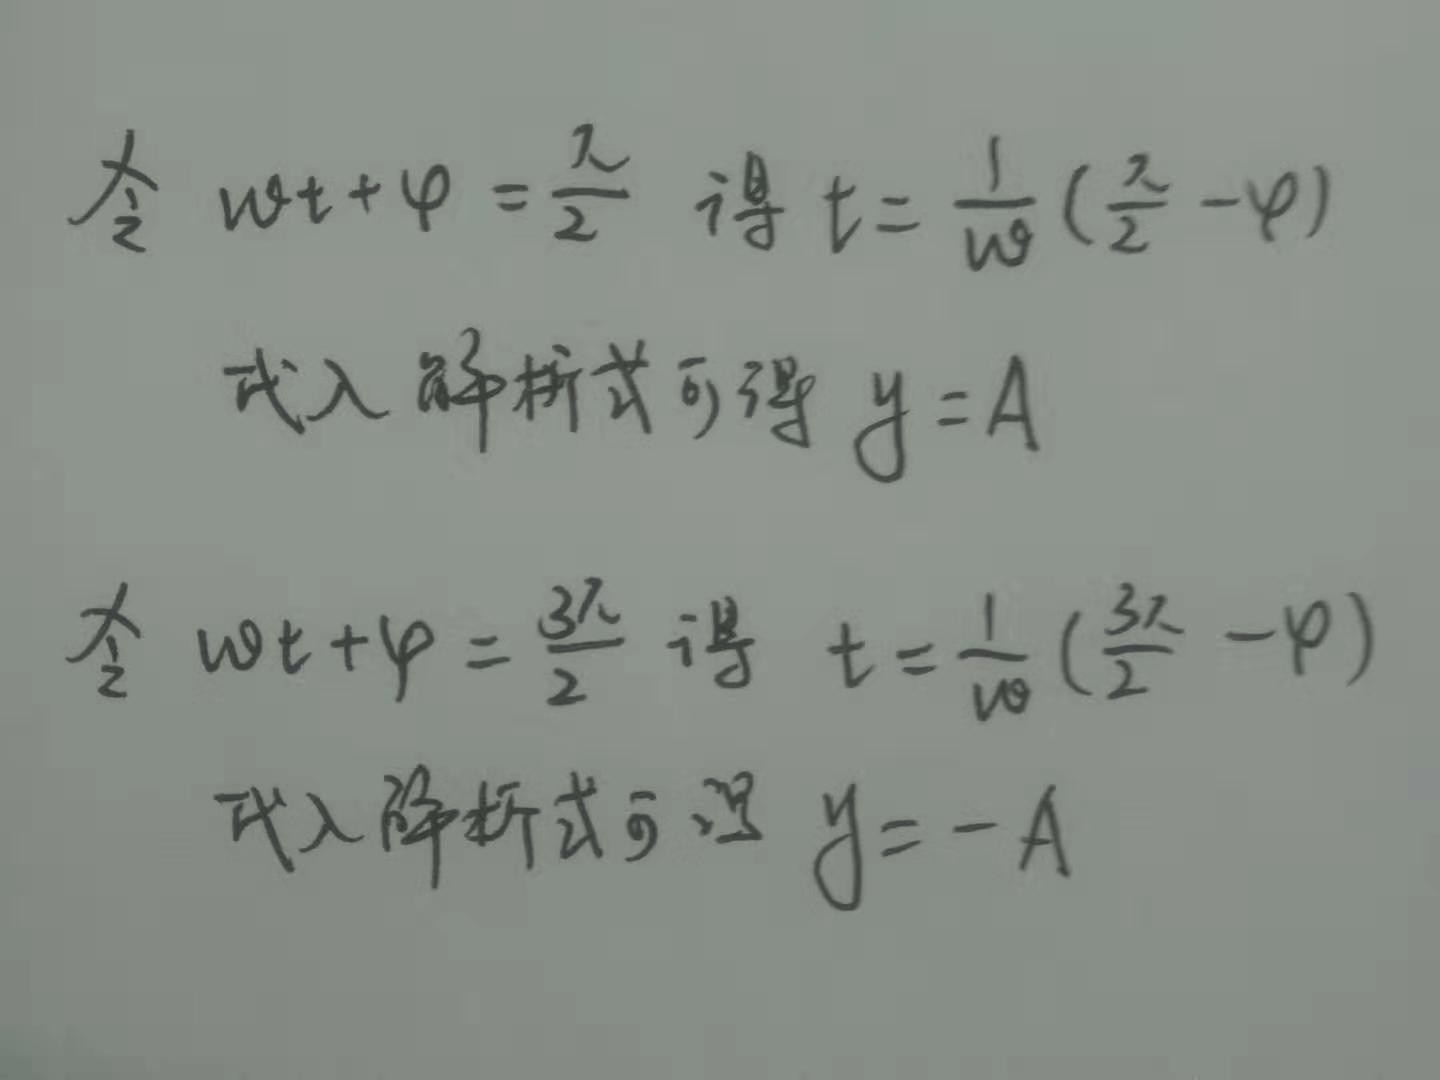 令 ωt+φ=π/2 得 t=1/ω(π/2-φ)
代入解析式可得 y=A
令 ωt+φ=3π/2 得 t=1/ω(3π/2-φ)
代入解析式可得 y=-A